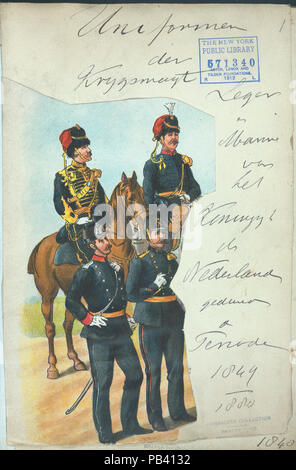 Uniformen
der
Krygsmagt
THE NEW YORK
PUBLIC LIBRARY
571340
ASTOR, LENOX AND
TILDEN FOUNDATIONS.
R 1912 L
Leger
en
Marine
van
het
Koningryk
der
Nederland
Periode
1849
1880
1840
alamy
PB4132